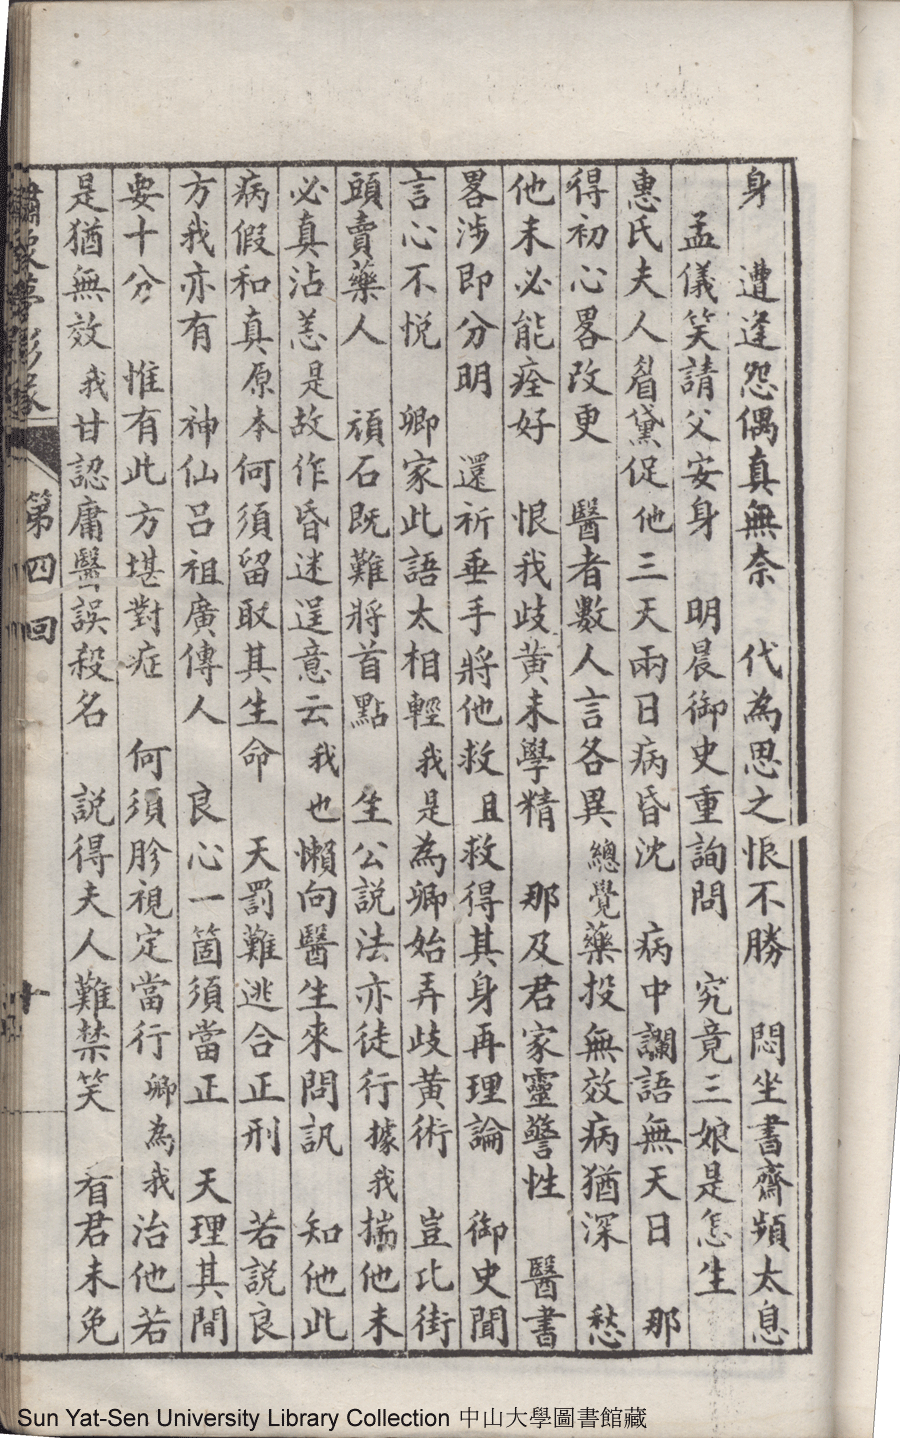 身　遭逢怨偶真無奈　代為思之恨不勝　悶坐書齋頻太息
孟儀笑請父安身　明晨御史重詢問　究竟三娘是怎生
惠氏夫人眉黛促　他三天兩日病昏沈　病中讕語無天日　那
得初心畧改更　醫者數人言各異　總覺藥投無效病猶深　愁
他未必能痊好　恨我歧黃未學精　那及君家靈警性　醫書
畧涉即分明　還祈垂手將他救　且救得其身再理論　御史聞
言心不悅　卿家此語太相輕　我是為卿始弄歧黃術　豈比街
頭賣藥人　頑石既難將首點　生公說法亦徒行　據我揣他未
必真沾恙　是故作昏迷逞意云　我也懶向醫生來問訊　知他此
病假和真　原本何須留取其生命　天罰難逃合正刑　若說良
方我亦有　神仙呂祖廣傳人　良心一箇須當正　天理其間
要十分　惟有此方堪對症　何須胗視定當行　卿為我治他若
是猶無效　我甘認庸醫誤殺名　說得夫人難禁笑　看君未免
繡像夢影緣　第四回　十
Sun Yat-Sen University Library Collection 中山大學圖書館藏